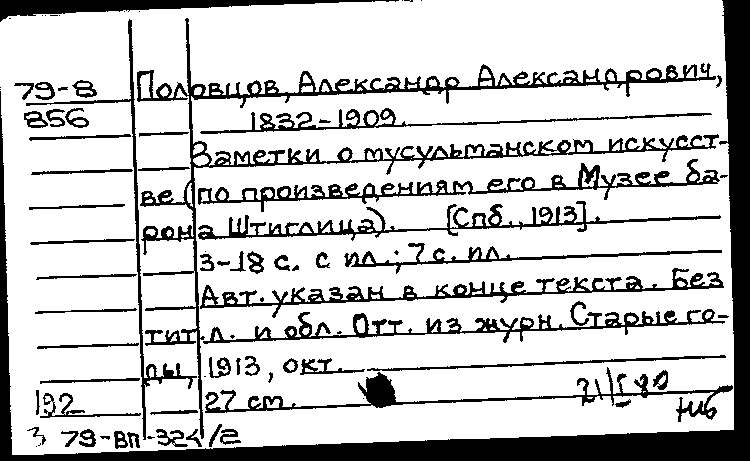 79-8 Половцов, Александр Александрович,
856 1832-1909.
Заметки о мусульманском искусст-
ве (по произведениям его в Музее ба-
рона Штиглица). [Спб., 1913].
3-18 с. с ил.; 7 с. ил.
Авт. указан в конце текста. Без
тит. л. и обл. Отт. из журн. Старые го-
ды, 1913, окт.
192 27 см. 21/I 80
3 79-вп /2